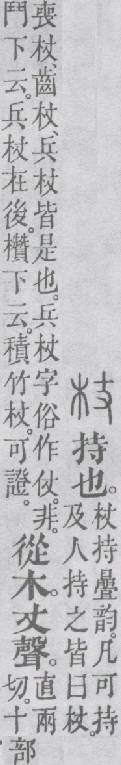 杖
持也。
杖持曡韵。凡可持
及人持之皆曰杖。
喪杖、齒杖、兵杖皆是也。兵杖字俗作仗。非。
鬥下云。兵杖在後。欑下云。積竹杖。可證。
從木。丈聲。
直兩
切。十部